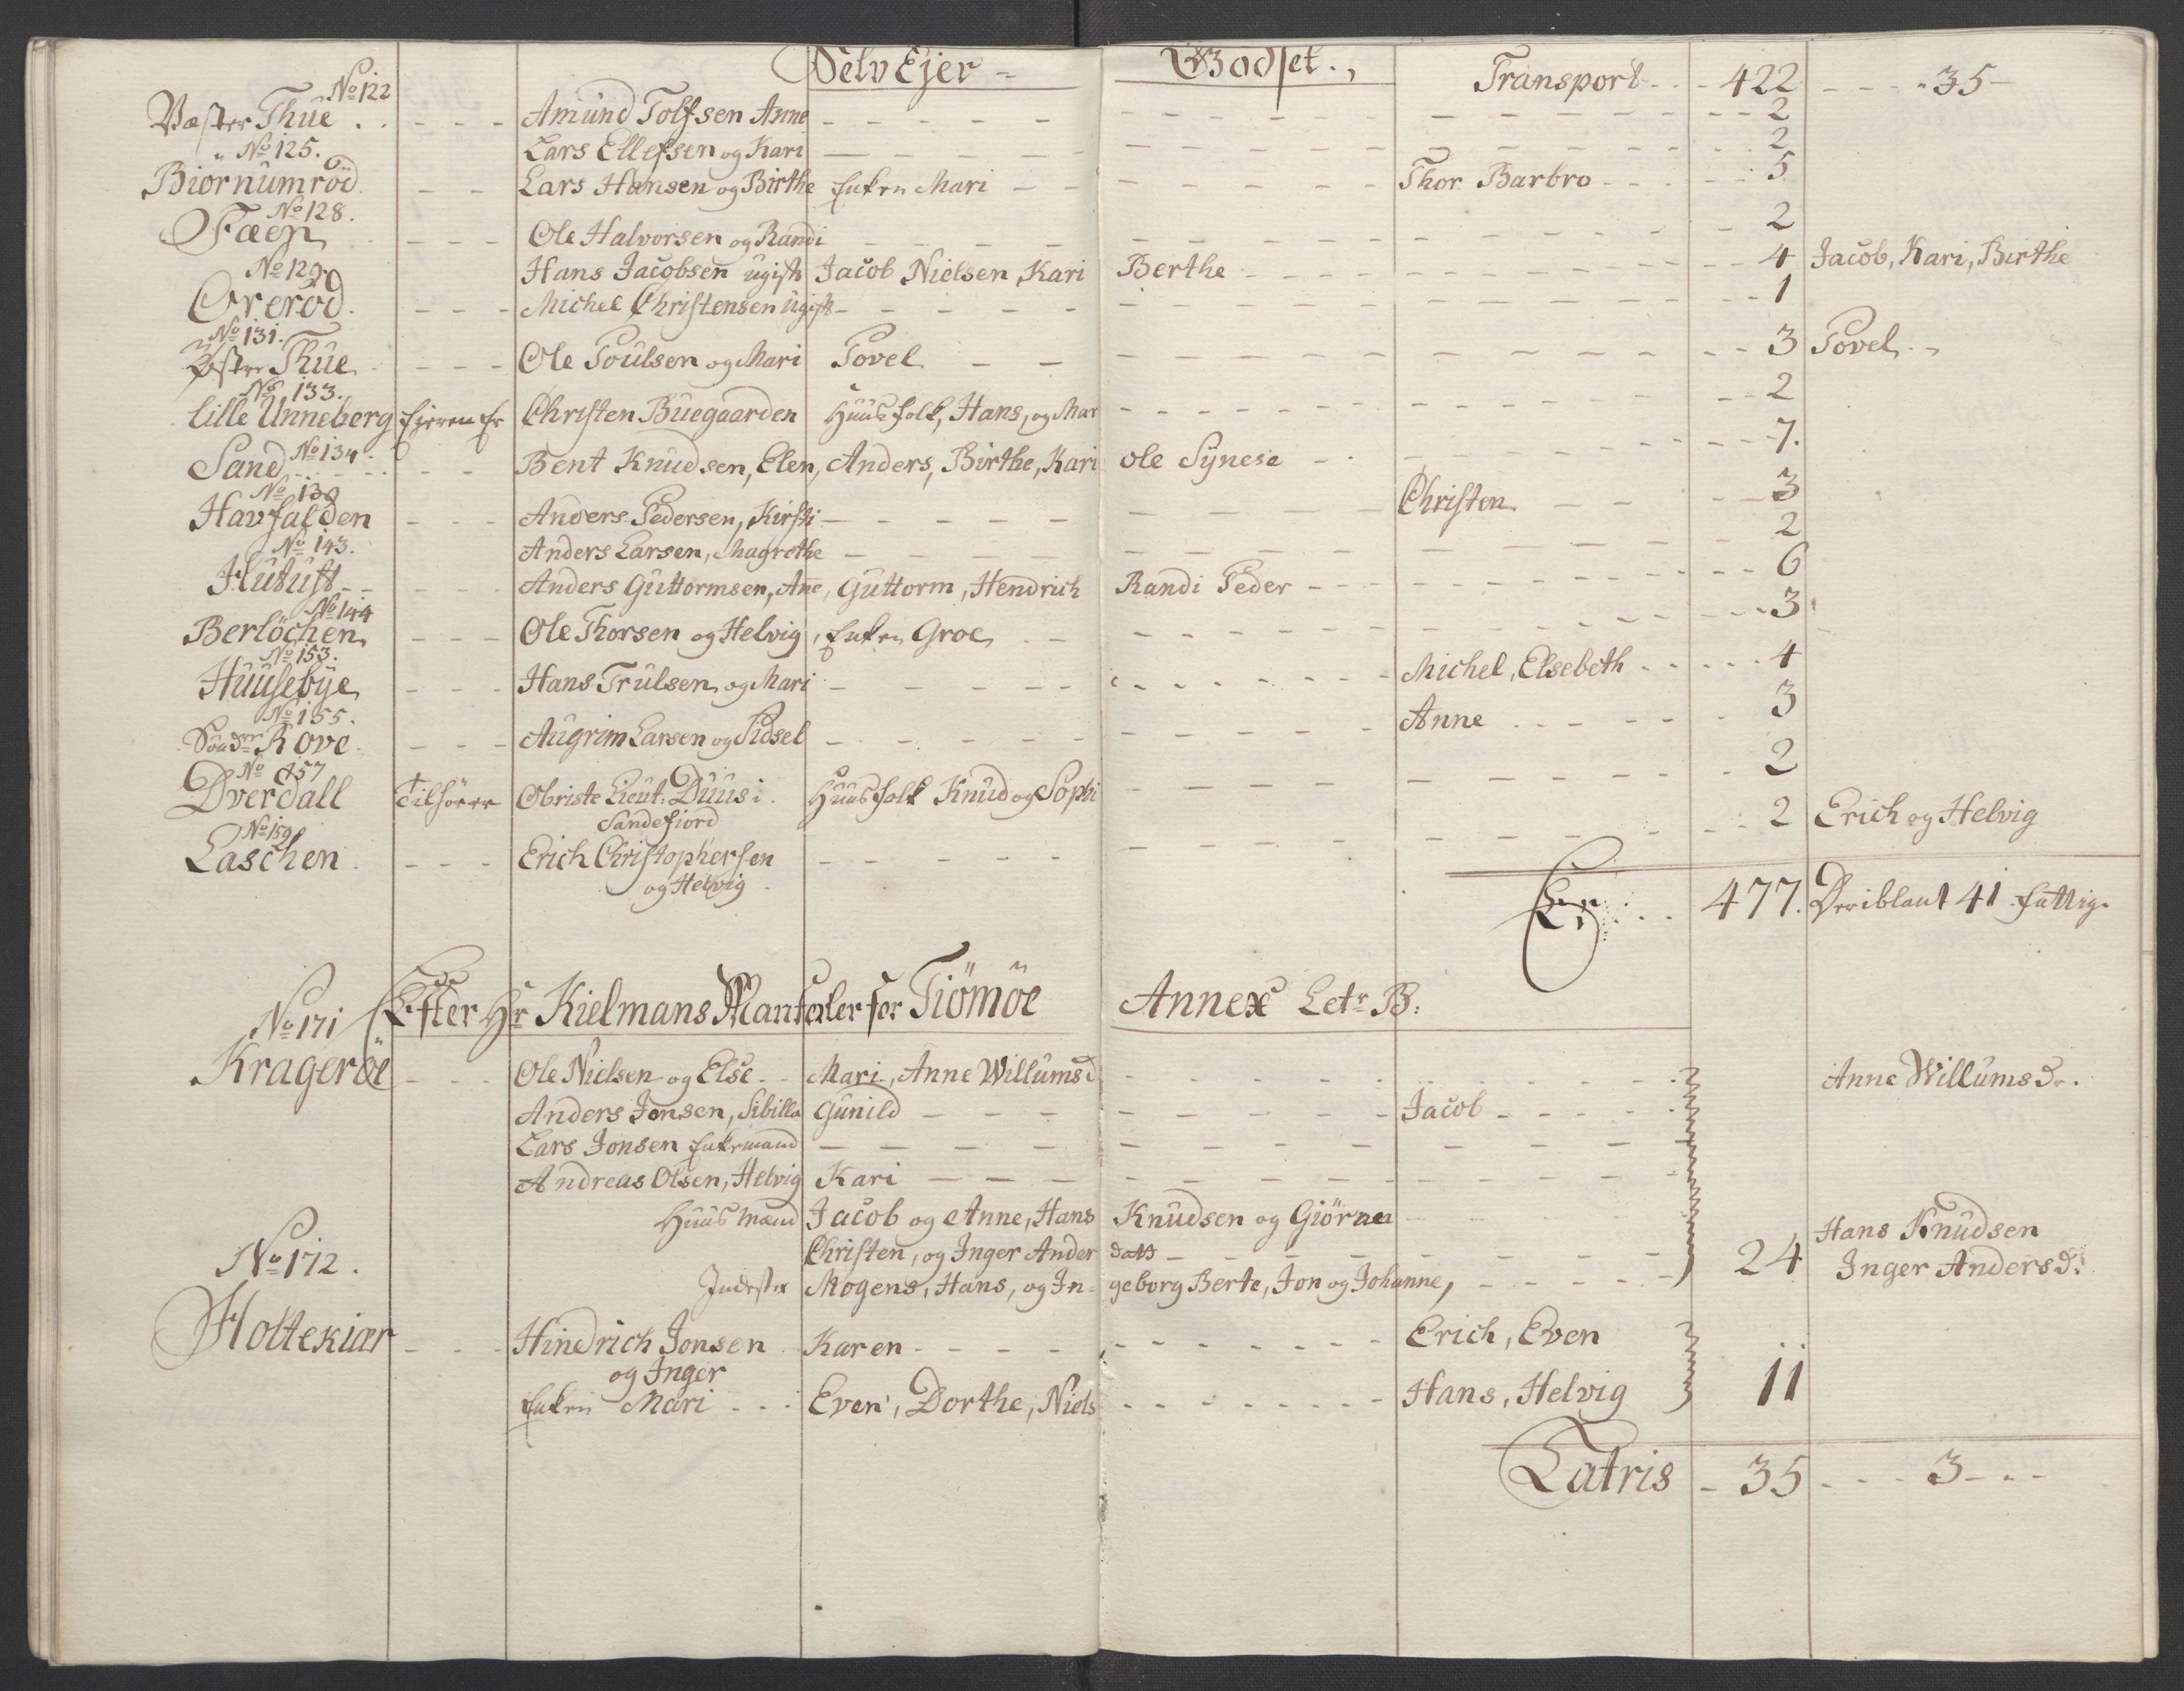 Selv Ejer - Godset.,
Transport - - - 422 - - - " 35 -
No 122
Væster Thue . . - - - Amund Tolfsen Anne - - - - - 2
" No 125.
Lars Ellefsen og Kari - - - - - 2
Biornumröd - - Lars Hansen og Birthe Enken Mari - - Thor Barbro - - - 5
No 128.
Faen - - - Ole Halvorsen og Randi - - - - 2
No 129
Hans Jacobsen ugift Jacob Nielsen, Kari Berthe - - - - 4 Jacob, Kari, Birthe
Oreröd - - - Michel Christensen ugift - - - - - 1
No 131.
Öster Thue - - - Ole Poulsen og Mari Povel - - 3 Povel - -
No 133.
Lille Unneberg Ejeren Er Christen Buegaarden Huusfolk, Hans, og Mar - - - 2
Sand No 134. - - Bent Knudsen, Elen, Anders, Birthe, Kari ole Synese - - - - 7.
No 139
Havfalden - - - Anders Pedersen, Kirsti - - - - Christen - - - 3
No 143.
Anders Larsen, Magrethe - - - - 2
Flutuft - - - Anders Guttormsen, Ane, Guttorm, Hendrich Randi Peder - - - 6
No 144
Berlöchen - - - Ole Thorsen og Helvig, Enken Groe - - 3
No 153.
Huusebye - - - Hans Trulsen og Mari - - - - Michel, Elsebeth - - - 4
No 155.
Sönder Rove - - - Augrim Larsen og Sidsel - - - - Anne - - - 3
No 157
Dverdall Tilhörer Obriste Lieut: Duus i Huusfolk Knud og Sophi - - - 2
Sandefiord
No 159
Laschen - - - Erich Christophersen - - - - 2 Erich og Helvig
og Helvig
477. Deriblant 41 fattige
Efter Hr Kielmans Mantaler for Tiömöe Annex Letr B:
No 171
Kragerøe - - - Ole Nielsen og Else - - Mari, Anne Willumsd - - - - Anne Willumsdr.
Anders Jonsen, Sibilla Gunild - - - - Jacob - - - -
Lars Jonsen Enkemand - - - -
Andreas Olsen, Helvig Kari - - - -
Huusmænd Jacob og Anne, Hans Knudsen og Giörnea - - - Hans Knudsen
No 172.
Christen, og Inger Anders datt - - - - 24 Inger Andersd:
Inderster Mogens, Hans, og In- geborg Berte, Jon og Johanne, - - - -
Holtekiær - - - Hindrich Jonsen Karen - - - - Erich, Even
og Inger
11
Enken Mari - - - Even, Dorthe, Niels - - - - Hans, Helvig
Latris - 35 - - - 3 - - -